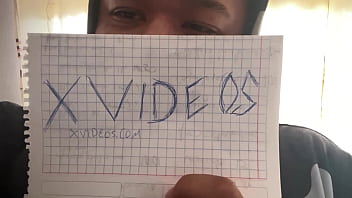 XVIDEOS
XVIDEOS.COM